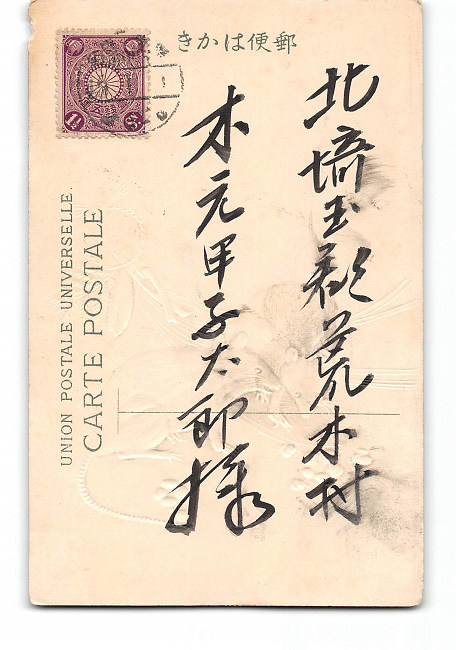 郵便はかき
北埼玉郡荒木村
木元甲子太郎様
UNION POSTALE UNIVERSELLE.
CARTE POSTALE
1½ Sn